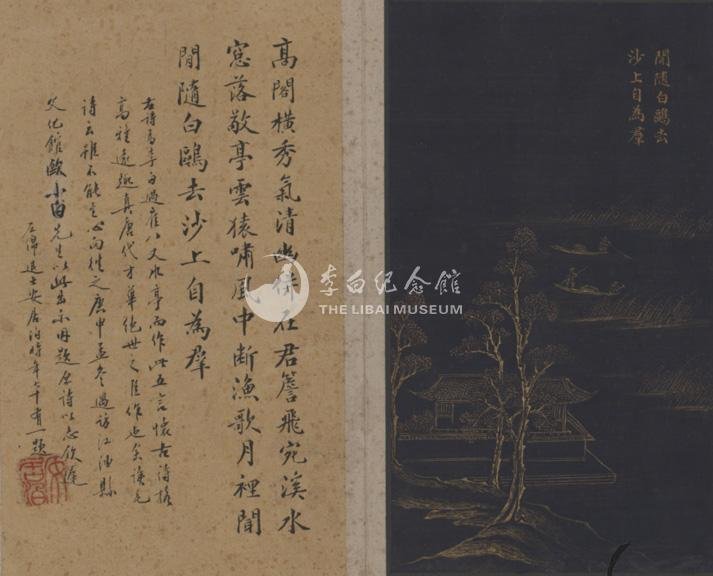 閒隨白鷗去
沙上自為羣
高閣橫秀氣清幽併在君簷飛宛溪水
窓落敬亭雲猿嘯風中斷漁歌月裡聞
閒隨白鷗去沙上自為羣
右詩為李白過崔八丈水亭而作此五言懷古詩格
高雅遠趣真唐代才華絕世之佳作也余讀
詩云雖不能至心向往之庚申孟冬過訪江油縣
文化館歐小白先生以此出示冊題原詩以志欽遲
左綿退士安居時年七十有一題
李白纪念館
THE LIBAI MUSEUM